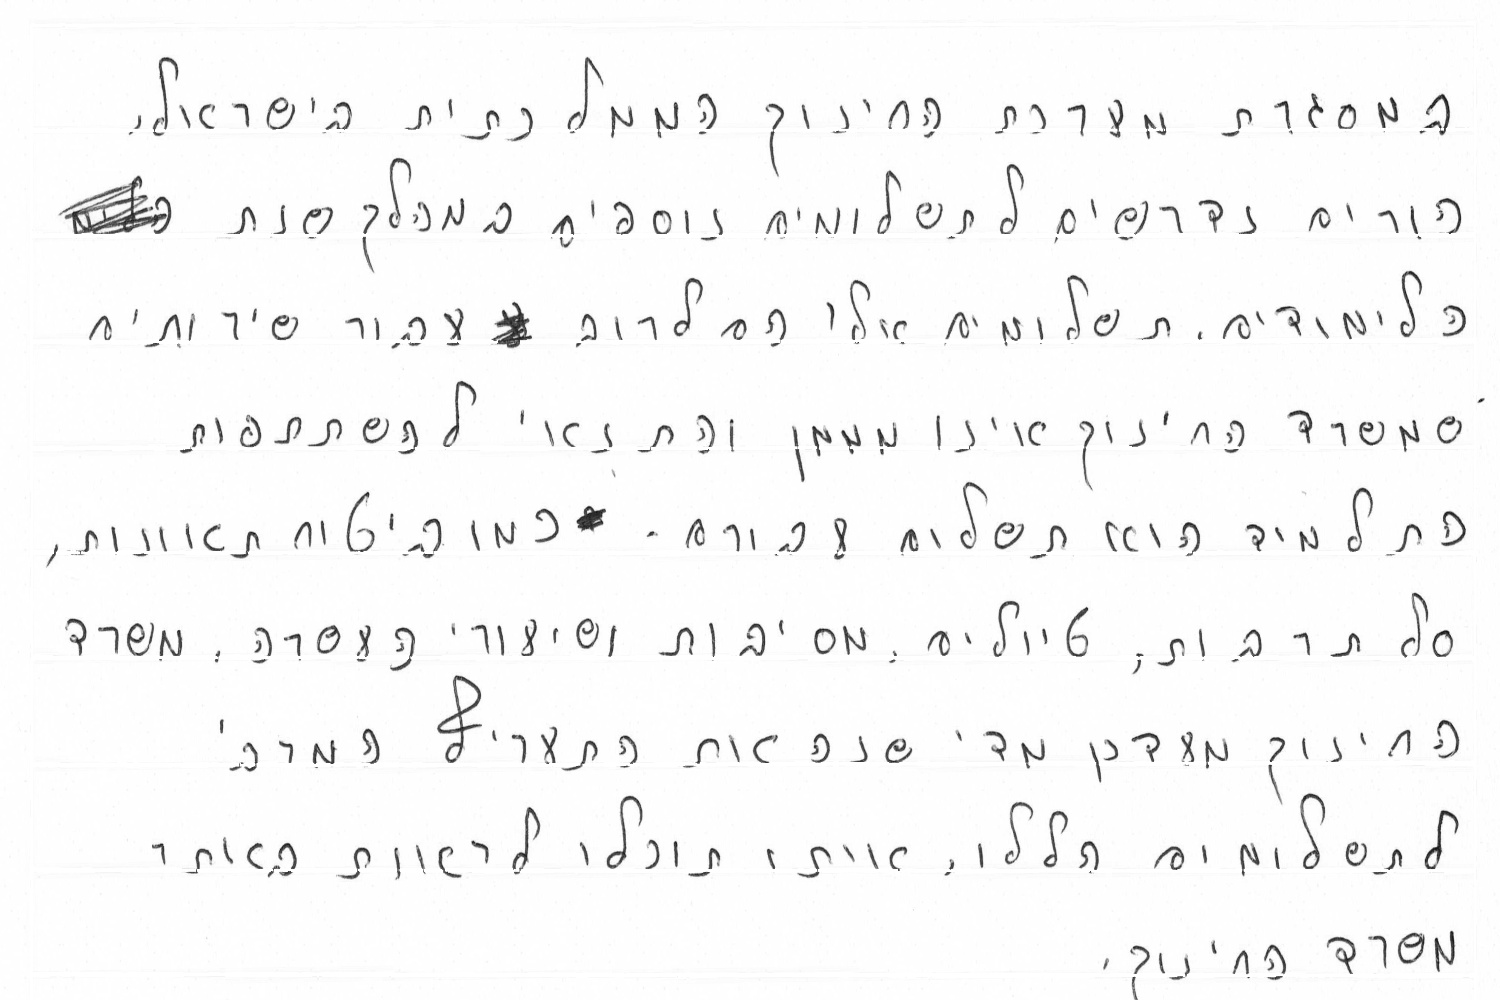 במסגרת מערכת החינוך הממלכתית בישראל,
הורים נדרשים לתשלומים נוספים במהלך שנת
הלימודים. תשלומים אלו הם לרוב עבור שירותים
שמשרד החינוך אינו מממן והתנאי להשתתפות
התלמיד הוא תשלום עבורם. כמו ביטוח תאונות,
סל תרבות, טיולים, מסיבות ושיעורי העשרה. משרד
החינוך מעדכן מדי שנה את התעריף המרבי
לתשלומים הללו, אותו תוכלו לראות באתר
משרד החינוך.